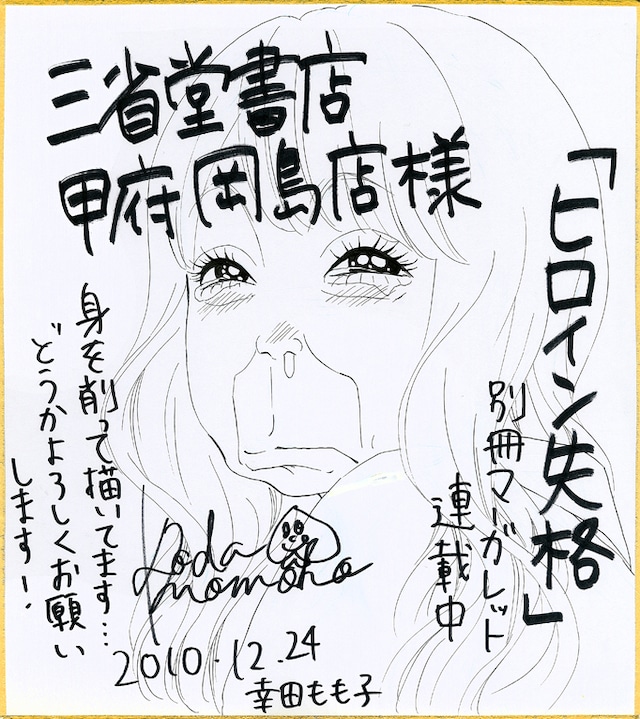 三省堂書店
甲府岡島店様
「ヒロイン失格」
別冊マーガレット
連載中
身を削って描いてます…
どうかよろしくお願い
します！
Koda
momoko
2010.12.24
幸田もも子